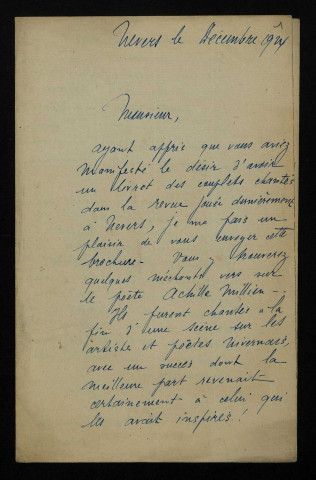 Nevers le Décembre 1924
Monsieur,
ayant appris que vous aviez
manifesté le désir d'avoir
un livret des couplets chantés
dans la revue jouée dernièrement
à Nevers, je me fais un
plaisir de vous envoyer cette
brochure - Vous y trouverez
quelques méchants vers sur
le poète Achille Millien -
Ils furent chantés à la
fin d'une scène sur les
artistes et poètes nivernais,
avec un succès dont la
meilleure part revenait
certainement à celui qui
les avait inspirés !